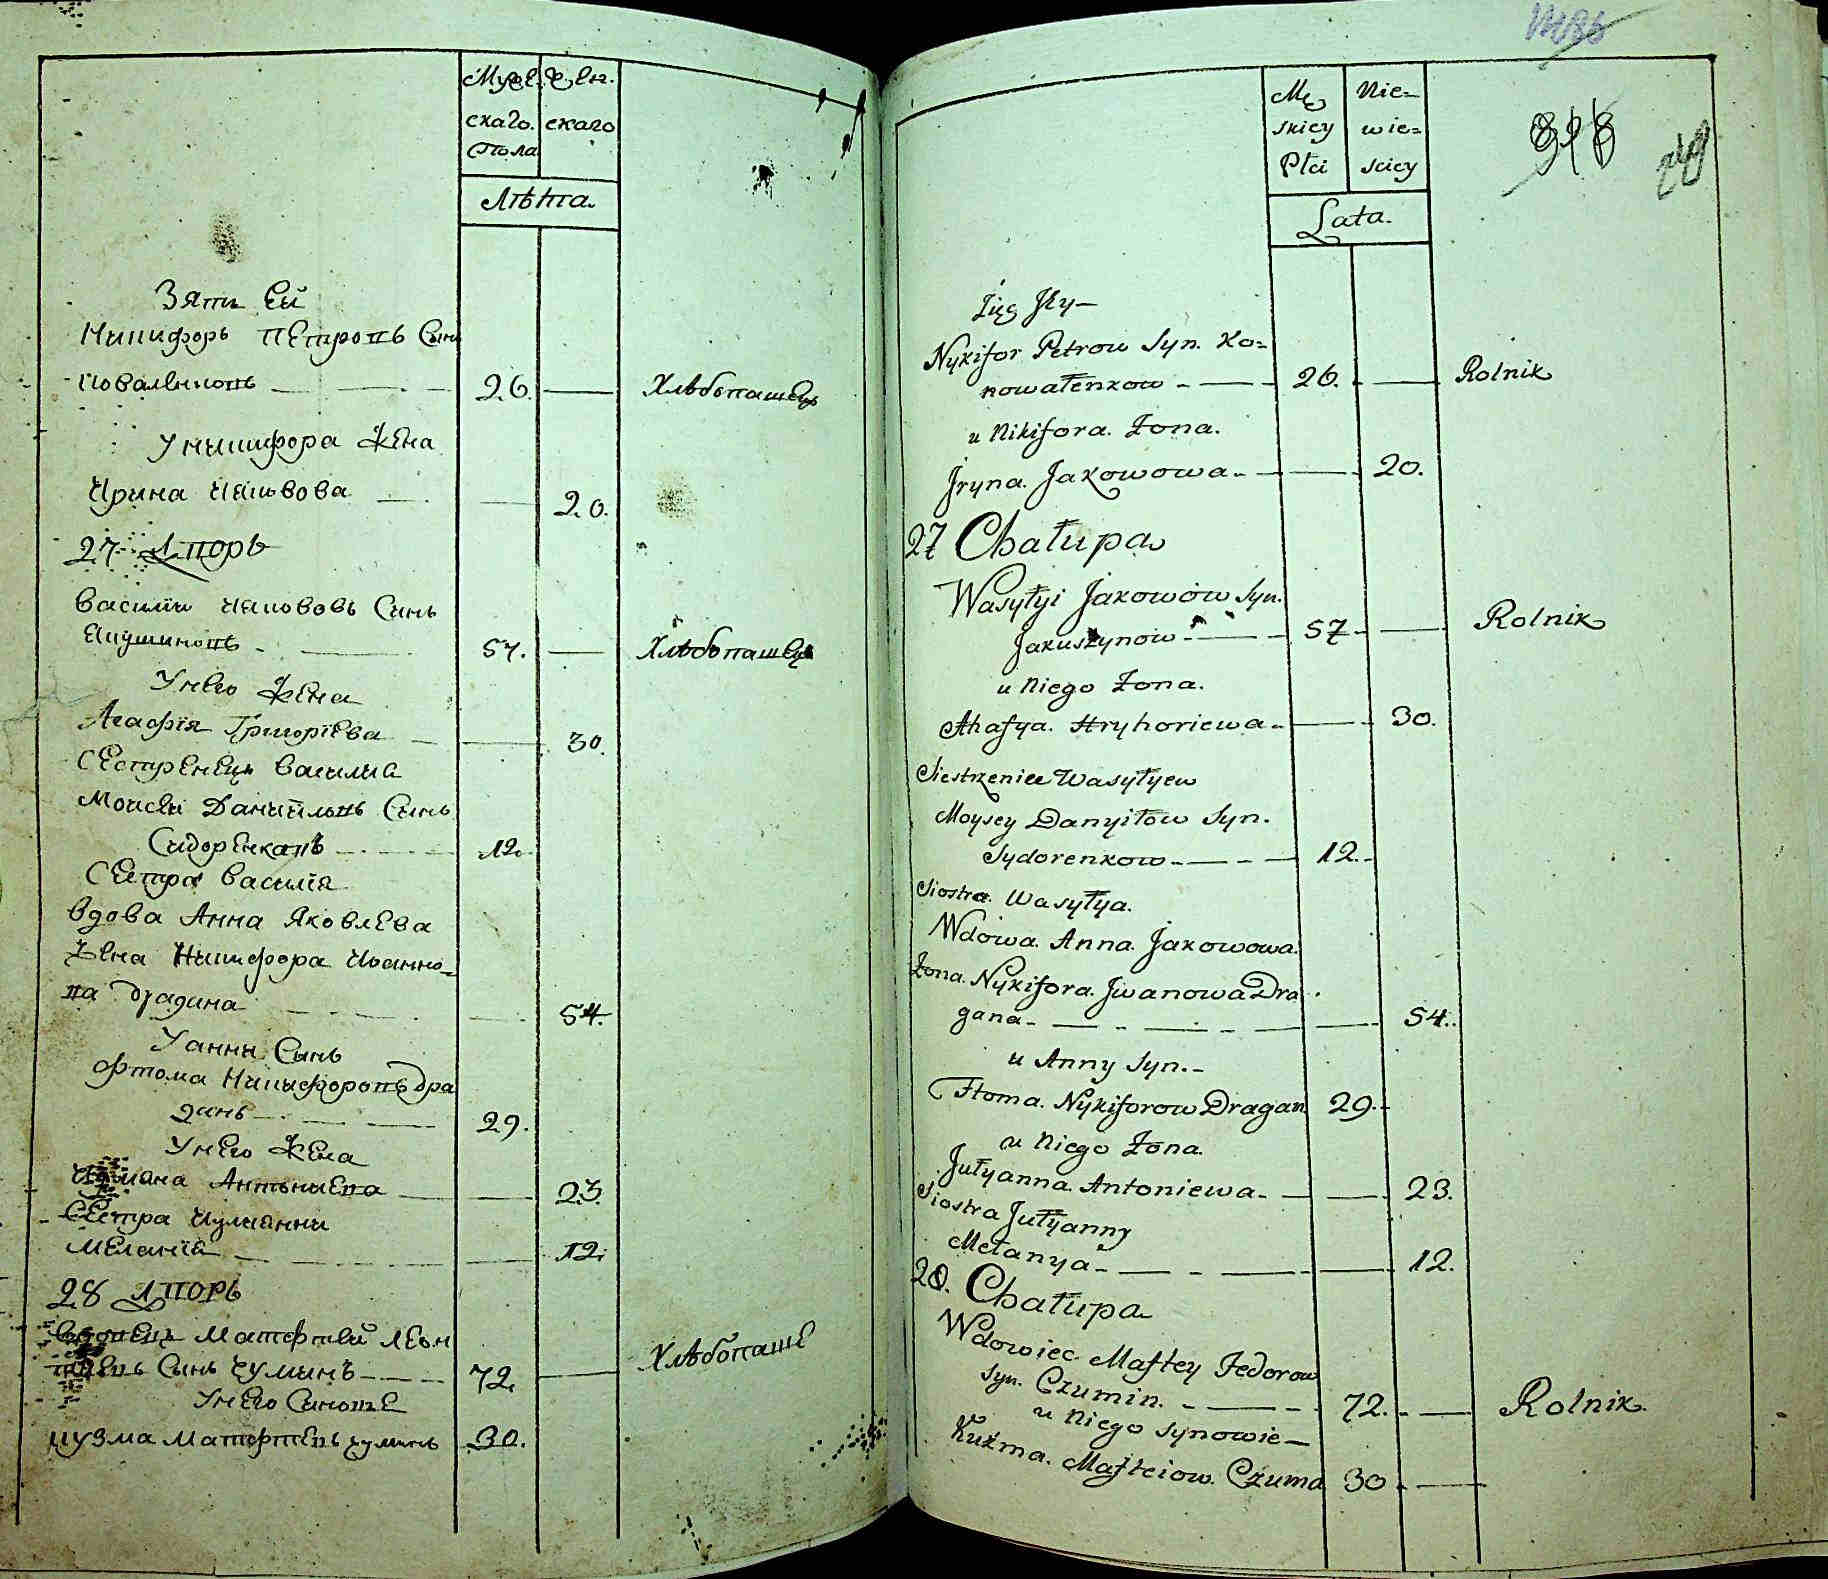 Муже- Жен-
скаго скаго
Пола
Лѣта.
Зять Ей
Никифоръ Петровъ Сынъ
Коваленковъ 26. Хлѣбопашецъ
У Никифора Жена
Ирина Яковова 20.
27 Дворъ
Василій Якововъ Сынъ
Якушиновъ 57. Хлѣбопашец
У него Жена
Агафія Григоріева 30.
Сестренецъ Василия
Моисей Даниіловъ Сынъ
Сидоренковъ 12.
Сестра Василія
Вдова Анна Яковлева
Жена Никифора Иванно=
ва Драгина 54.
У Анны Сынъ
Фтома Никифоровъ Дра
ганъ 29.
У него Жена
Антониева 23.
Сестра Иулианни
Меланіа 12.
28 Дворъ
Вдовецъ Матфтей
Сынъ Чуминъ 72. Хлѣбопаше
У него Синове
Кузма Матфтевъ Чуминъ 30.
Mę Nie=
skiey wie=
Płci sciey
Lata.
Nykifor Petrow Syn. Ko=
nowałenkow 26. Rolnik
u Nikifora. Żona.
Jryna. Jakowowa 20.
27 Chałupa
Wasyłyi Jakowow Syn.
Jakuszynow 57 Rolnik
u Niego Żona.
Ahafya. Hryhoriewa 30.
Siestrzeniec Wasyłyew
Moysey Danyiłow Syn.
Sydorenkow 12.
Siostra. Wasyłya.
Wdowa. Anna. Jakowowa.
Żona. Nykifora. Jwanowa Dra
gana 54.
u Anny Syn.
Ftoma. Nykiforow Dragan 29.
u Niego Żona.
Jułyanna. Antoniewa 23.
Siostra Jułyanny
Mełanya 12.
28. Chałupa
Wdowiec. Maftey Fedorow
Syn. Czumin. 72. Rolnik.
u Niego Synowie
Kuźma. Mafteiow. Czuma 30